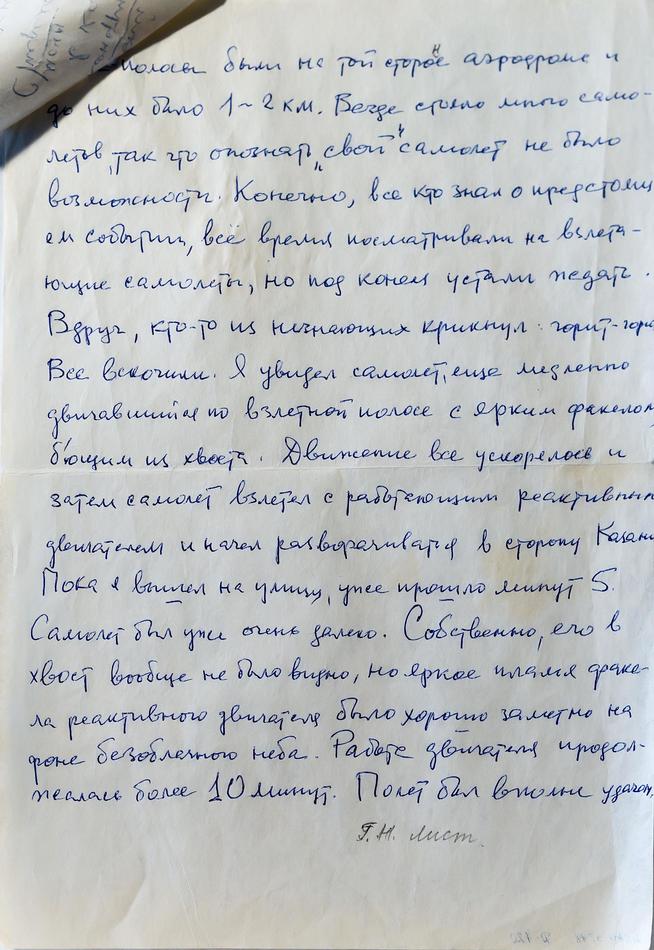 полосы были на той стороне аэродрома и
до них было 1-2 км. Везде стояло много само-
летов, так что опознать „свой“ самолет не было
возможности. Конечно, все кто знал о предстоящ
ем событии, всё время посматривали на взлета-
ющие самолеты, но под конец устали ждать.
Вдруг, кто-то из незнающих крикнул: горит-гори
Все вскочили. Я увидел самолет, еще медленно
двигавшийся по взлетной полосе с ярким факелом
бьющим из хвоста. Движение все ускорялось и
затем самолет взлетел с работающим реактивным
двигателем и начал разворачиваться в сторону Казани
Пока я вышел на улицу, уже прошло минут 5.
Самолет был уже очень далеко. Собственно, его в
хвост вообще не было видно, но яркое пламя факе-
ла реактивного двигателя было хорошо заметно на
фоне безоблачного неба. Работа двигателя продол-
жалась более 10 минут. Полет был вполне удачн
Г.Н. Лист.